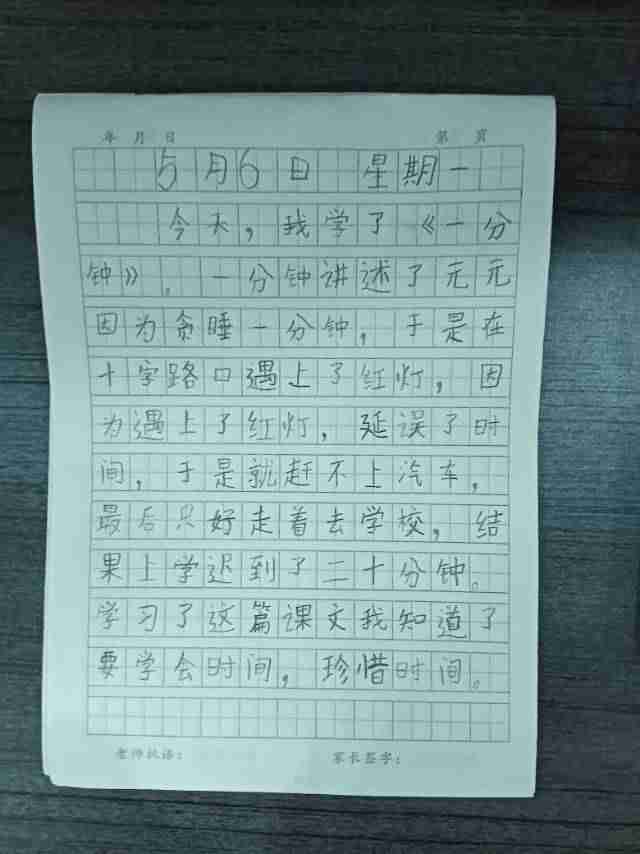 年 月 日 第 页
5月6日 星期一
今天，我学了《一分
钟》。一分钟讲述了元元
因为贪睡一分钟，于是在
十字路口遇上了红灯，因
为遇上了红灯，延误了时
间，于是就赶不上汽车，
最后只好走着去学校，结
果上学迟到了二十分钟。
学习了这篇课文我知道了
要学会时间，珍惜时间。
老师批语： 家长签字：